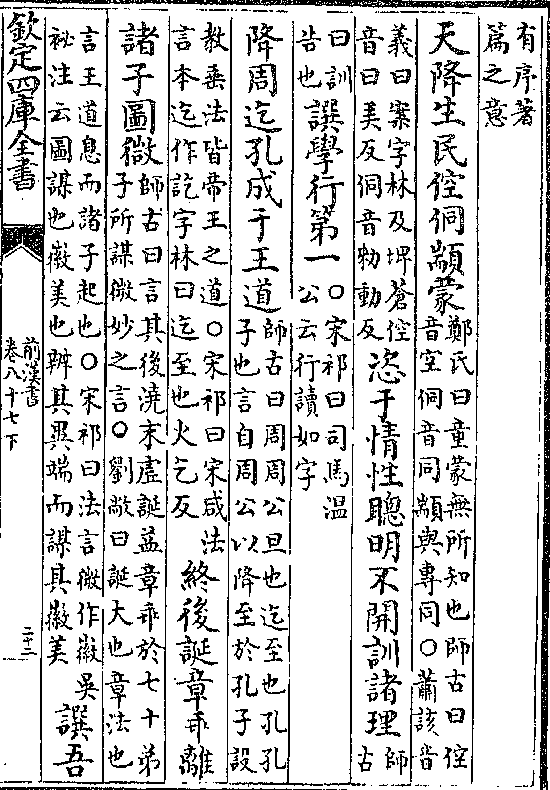 有序著
篇之意
天降生民倥侗顓蒙鄭氏曰童蒙無所知也師古曰倥
音空侗音同顓與專同○蕭該音
義曰案字林及埤蒼倥
音曰美反侗音勑動反恣于情性聰明不開訓諸理師古
曰訓
告也譔學行第一○宋祁曰司馬溫
公云行讀如字
降周迄孔成于王道師古曰周周公旦也迄至也孔孔
子也言自周公以降至於孔子設
教垂法皆帝王之道○宋祁曰宋咸法
言本迄作訖字林曰迄至也火乞反終後誕章乖離
諸子圖徽師古曰言其後澆末虛誕益章乖於七十弟
子所謀微妙之言○劉敞曰誕大也章法也
言王道息而諸子起也○宋祁曰法言微作徽吳
祕注云圖謀也徽美也辨其異端而謀其徽美譔吾
欽定四庫全書
前漢書
卷八十七下
二十二